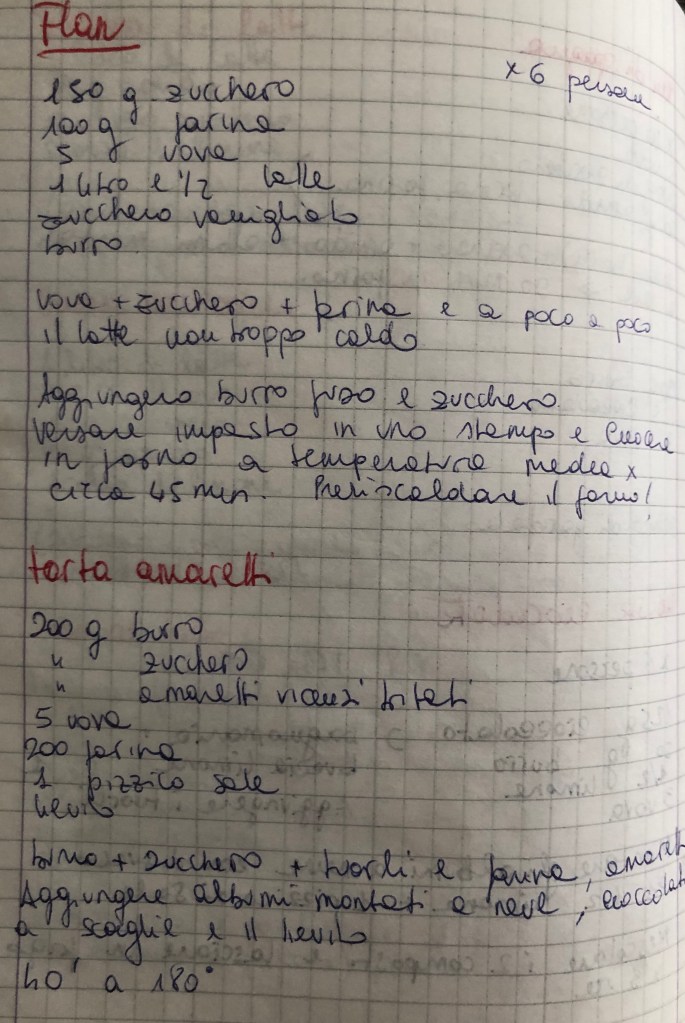 Flan
x 6 persone
150 g zucchero
100 g farina
5 uova
1 litro e 1/2 latte
zucchero vanigliato
burro
uova + zucchero + farina e a poco a poco
il latte non troppo caldo
Aggiungere burro fuso e zucchero.
Versare impasto in uno stampo e cuocere
in forno a temperatura media x
circa 45 min. Preriscaldare il forno!
torta amaretti
200 g burro
" zucchero
" amaretti tritati
5 uova
200 farina
1 pizzico sale
lievito
burro + zucchero + tuorli e farina, amaretti
Aggiungere albumi montati a neve, cioccolato
a scaglie e il lievito
40' a 180°